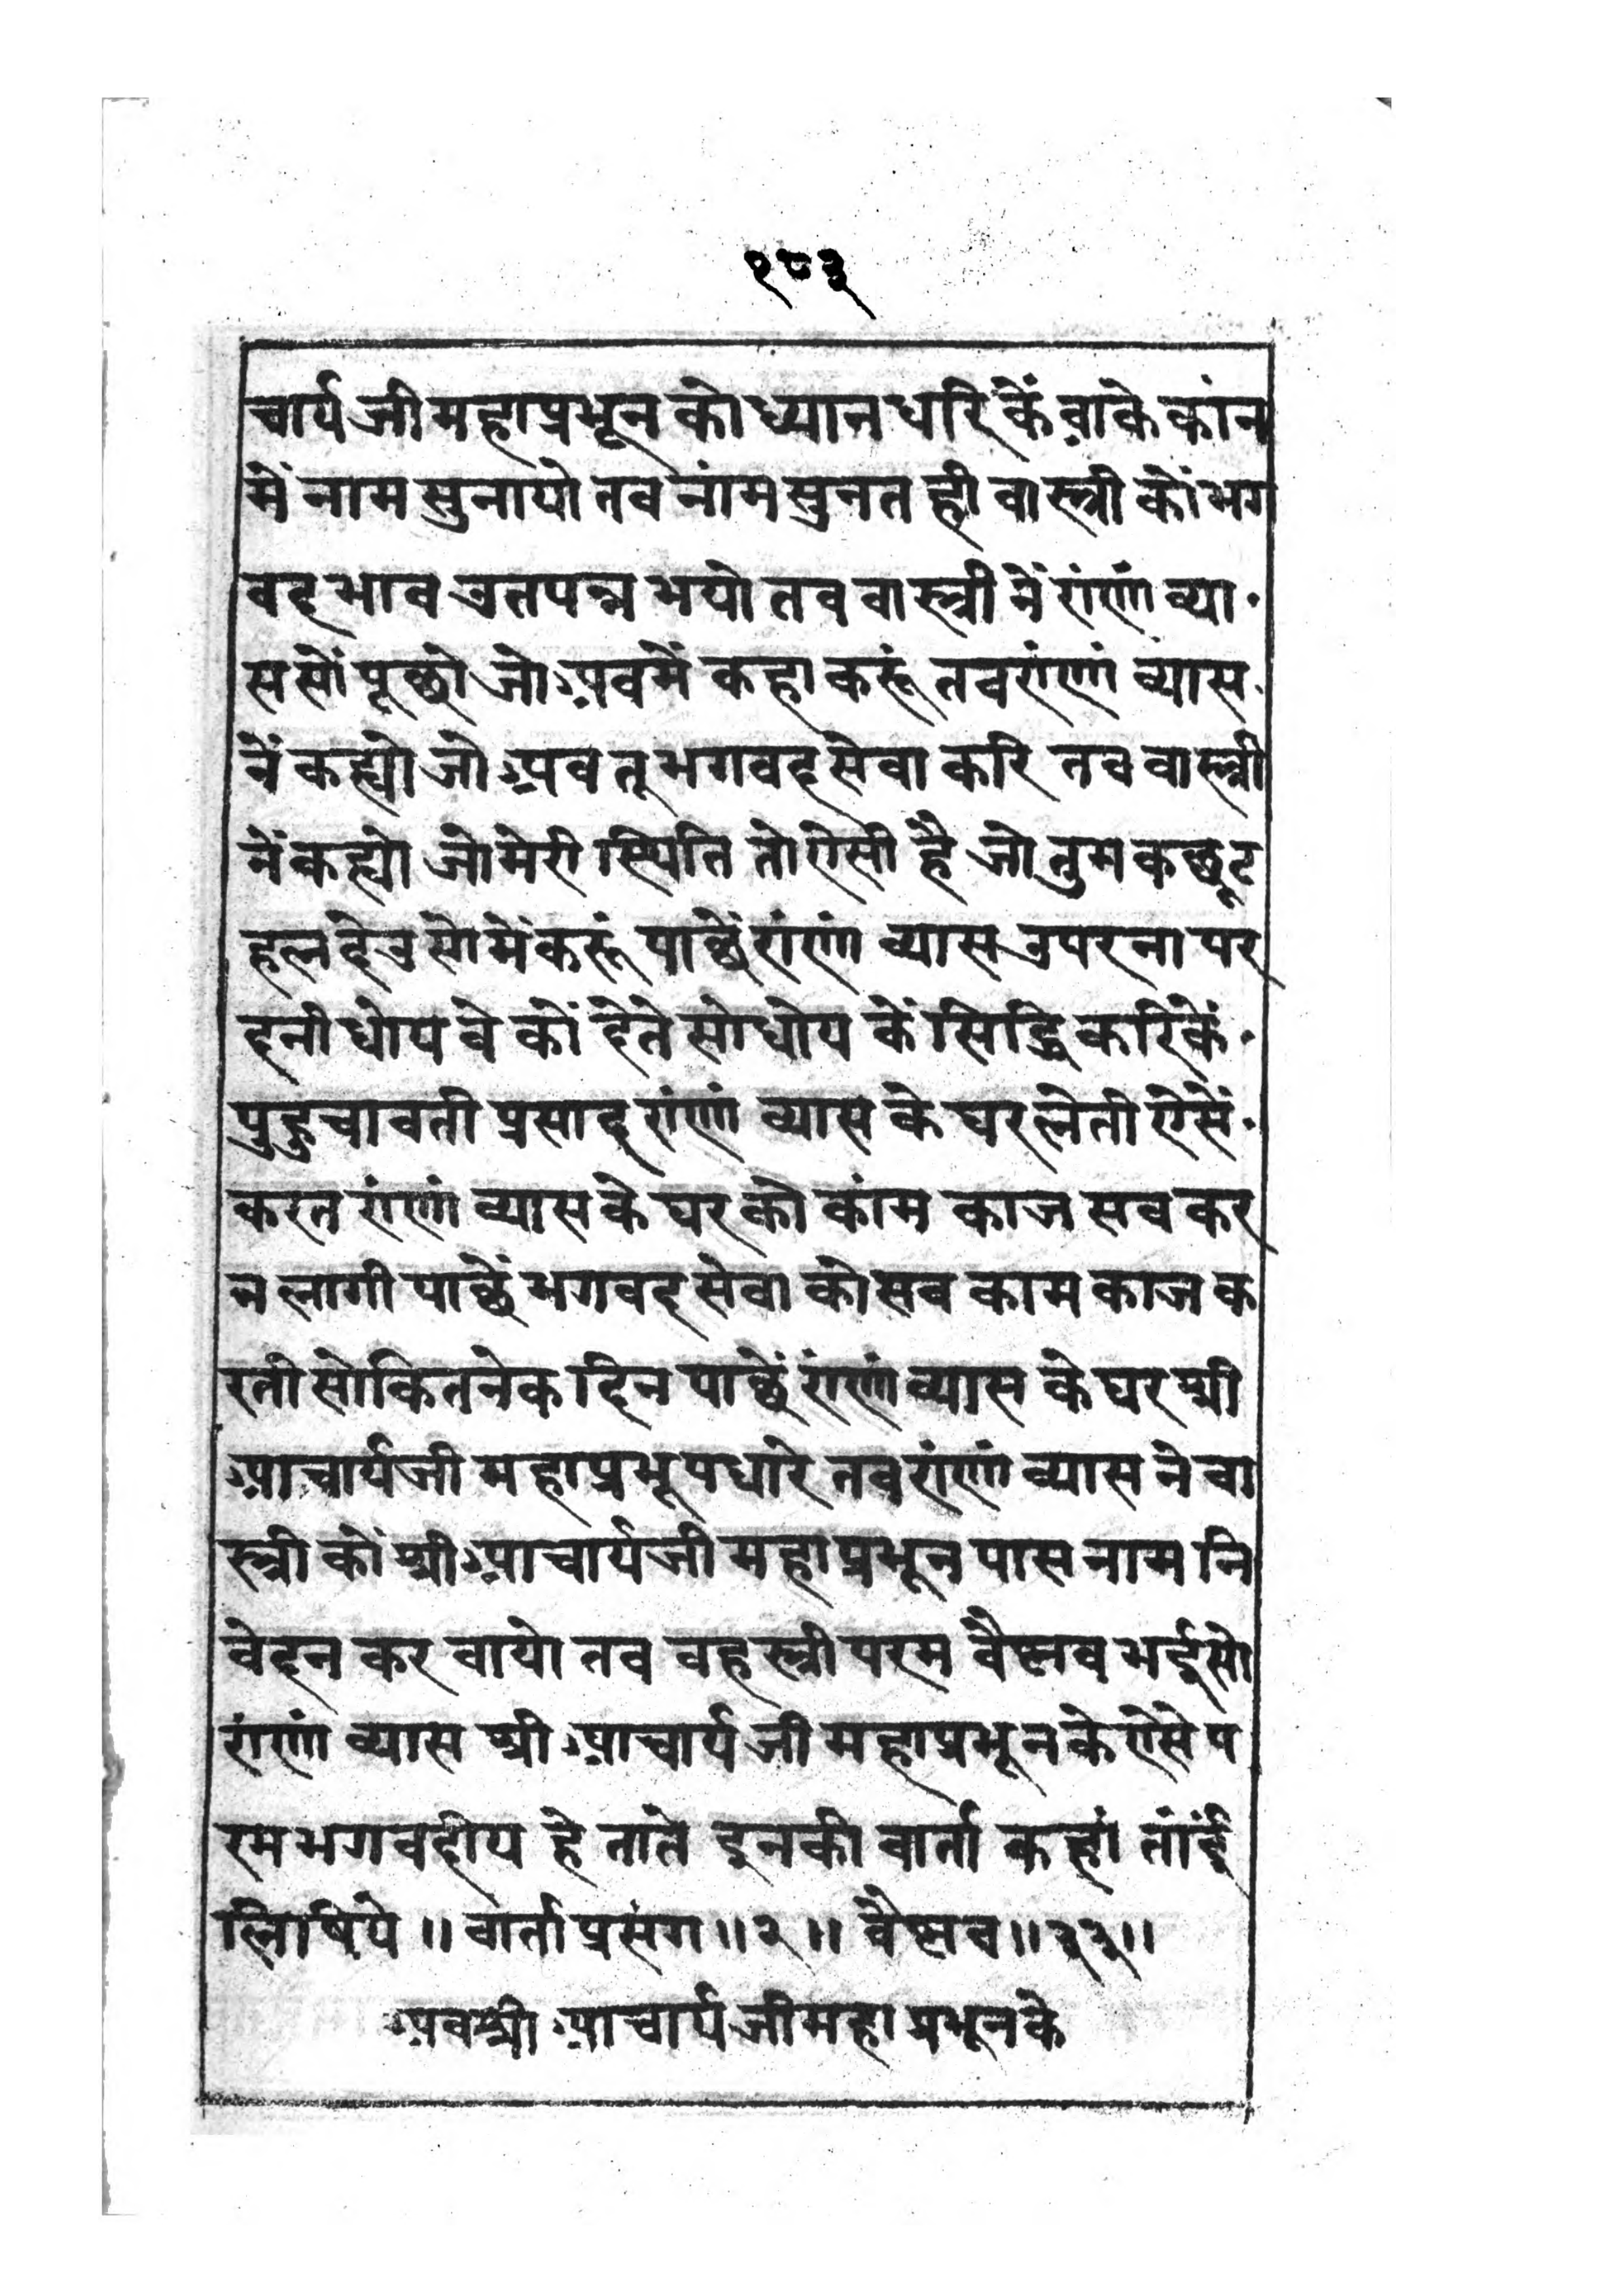 १८३
चार्यजीमहाप्रभूनकोध्यानधरिकेंवाकेकांन
मेंनामसुनायोतवनांमसुनतहीवास्त्रीकोंभग
वद्भावउतपन्नभयोतववास्त्रीनेंरांणांव्या
ससोंपूछोजोअवमेंकहाकरूंतवरांणांव्यास
नेंकह्योजोअवतूभगवद्सेवाकरितववास्त्री
नेंकह्योजोमेरीस्थितितोऐसीहैजोतुमकछूट
हलदेउसोमेंकरूंपाछेंरांणांव्यासउपरनापर
दनीधोयवेकोंदेतेसोधोयकेंसिद्धिकरिकें
पुहुचावतीप्रसादरांणांव्यासकेघरलेतीऐसें
करतरांणांव्यासकेघरकोकांमकाजसवकर
नलागीपाछेंभगवद्सेवाकोसवकामकाजक
रतीसोकितनेकदिनपाछेंरांणांव्यासकेघरश्री
आचार्यजीमहाप्रभूपधारेतवरांणांव्यासनेवा
स्त्रीकोंश्रीआचार्यजीमहाप्रभूनपासनामनि
वेदनकरवायोतववहस्त्रीपरमवैष्णवभईसो
रांणांव्यासश्रीआचार्यजीमहाप्रभूनकेऐसेप
रमभगवदीयहेतातेइनकीवार्ताकहांतांई
लिषिये॥वार्ताप्रसंग॥२॥वैष्णव॥३३॥
अवश्रीआचार्यजीमहाप्रभूनके